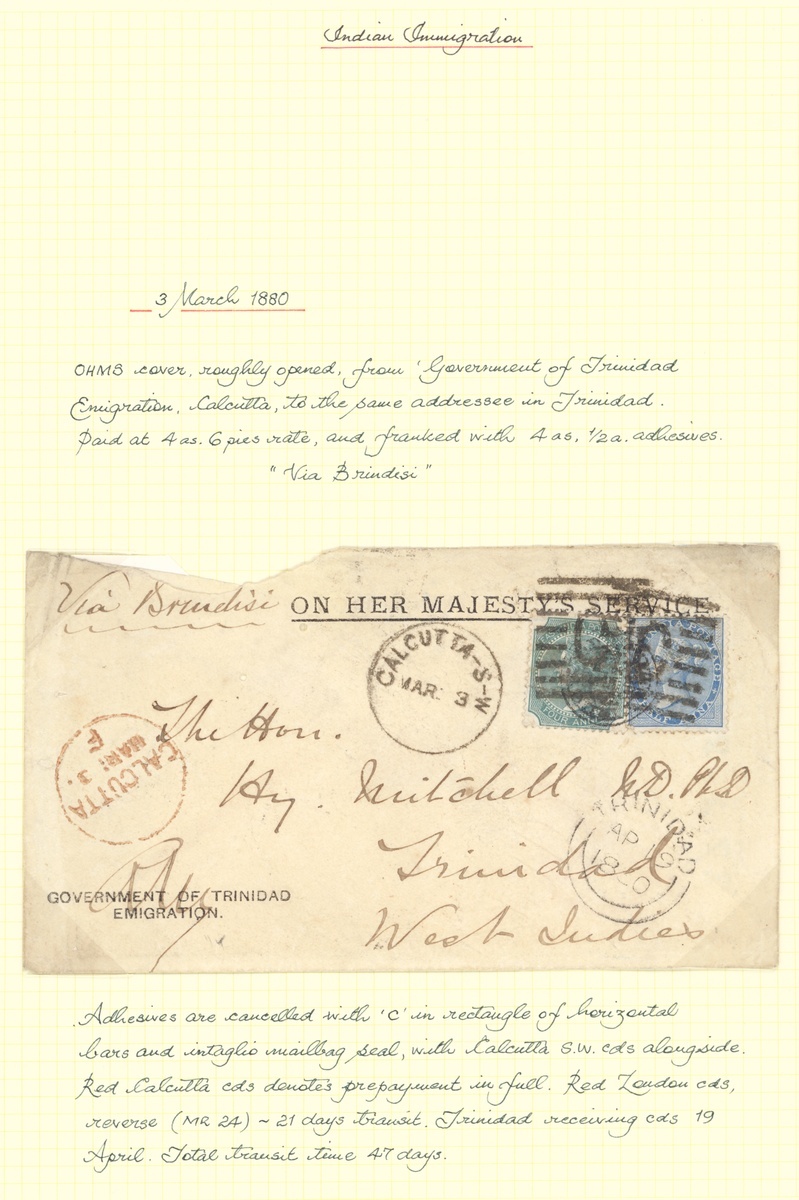 Indian Immigration
3 March 1880
OHMS cover, roughly opened, from 'Government of Trinidad
Emigration, Calcutta, to the same addressee in Trinidad.
Paid at 4 as. 6 pies rate, and franked with 4 as, 1/2 a. adhesives.
"Via Brindisi"
Via Brindisi ON HER MAJESTY'S SERVICE
CALCUTTA-S-W
MAR: 3
FOUR ANNAS
HALF ANNA
C
The Hon.
CALCUTTA
MAR: 3.
F
Hy. Mitchell M.D. Ph.D
TRINIDAD
AP 19
Trinidad
GOVERNMENT OF TRINIDAD
EMIGRATION.
West Indies
Adhesives are cancelled with 'C' in rectangle of horizontal
bars and intaglio mailbag seal, with Calcutta S.W. cds alongside.
Red Calcutta cds denotes prepayment in full. Red London cds,
reverse (MR 24) ~ 21 days transit. Trinidad receiving cds 19
April. Total transit time 47 days.